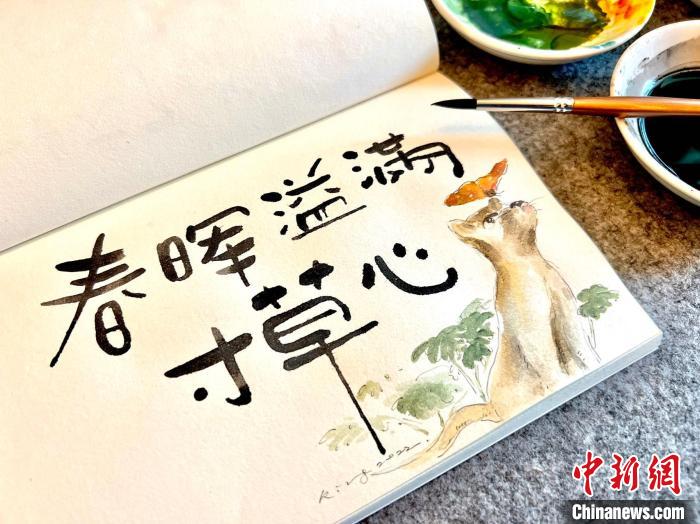 春晖溢满
寸草心
King 2022
中新网
Chinanews.com